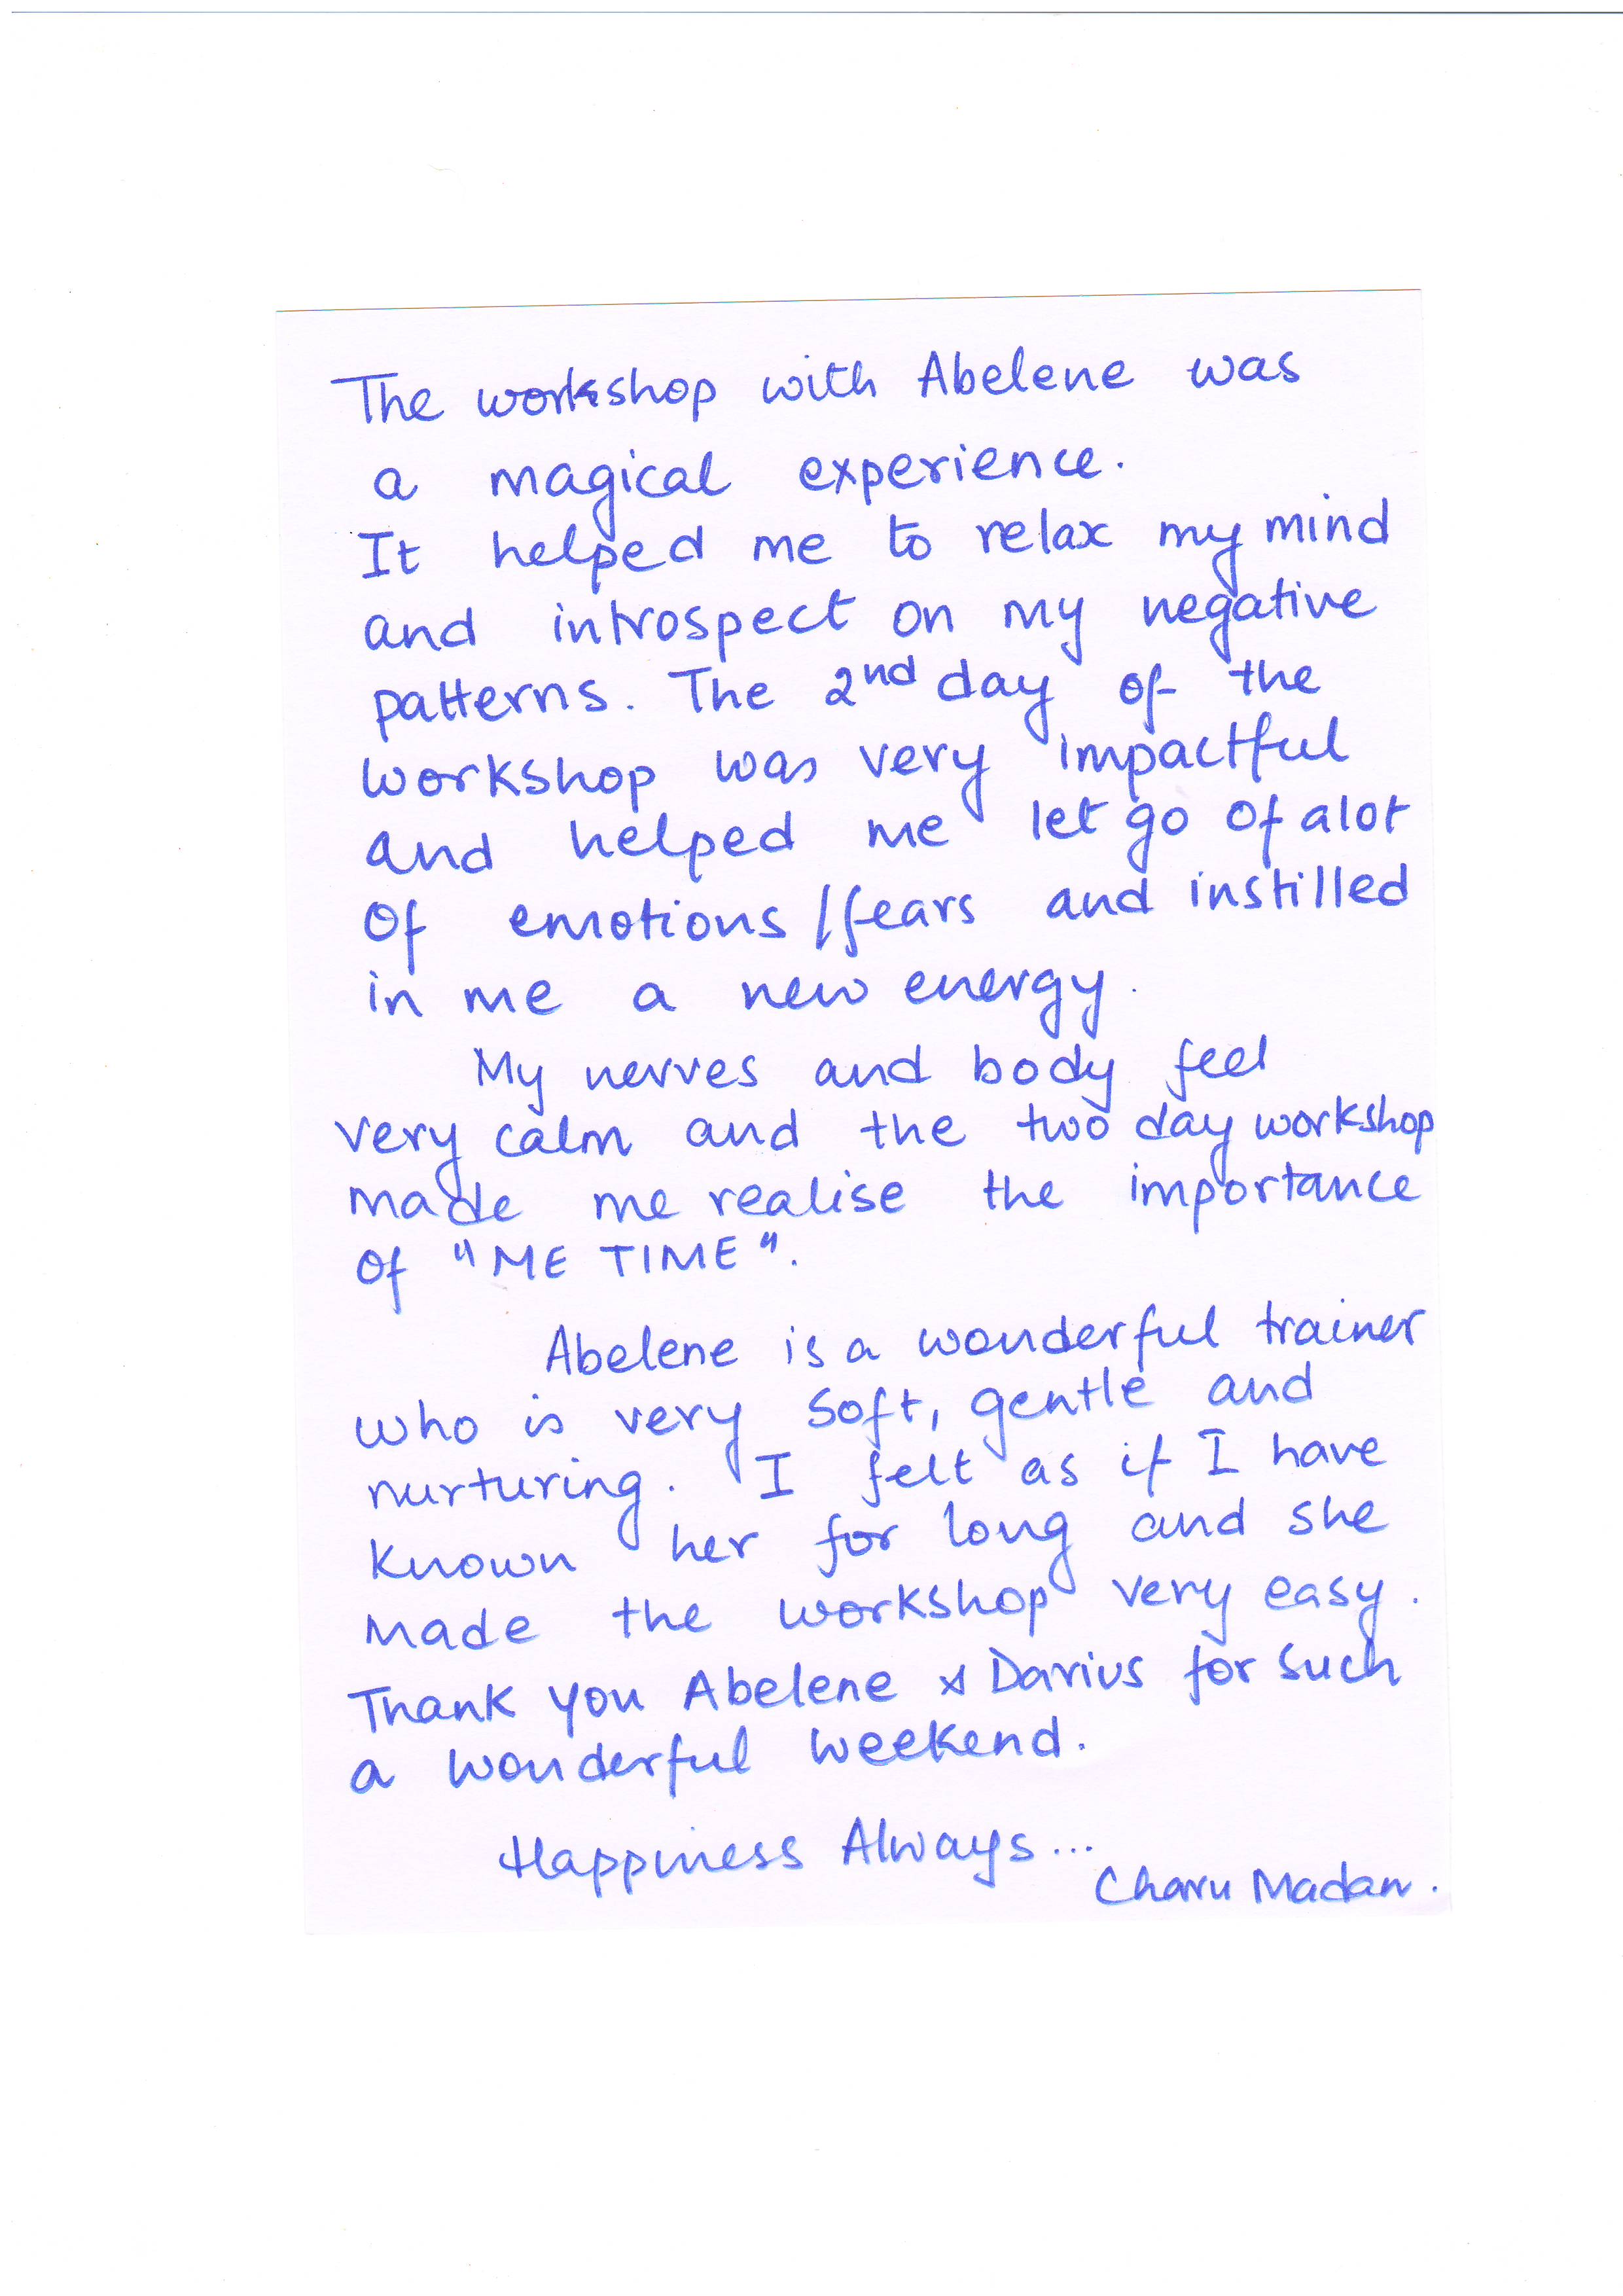 The workshop with Abelene was
a magical experience.
It helped me to relax my mind
and introspect on my negative
patterns. The 2nd day of the
workshop was very impactful
and helped me let go of alot
of emotions /fears and instilled
in me a new energy.
My nerves and body feel
very calm and the two day workshop
made me realise the importance
of "ME TIME".
Abelene is a wonderful trainer
who is very soft, gentle and
nurturing. I felt as if I have
known her for long and she
made the workshop very easy.
Thank you Abelene & Darius for such
a wonderful weekend.
Happiness Always...
Charu Madan.